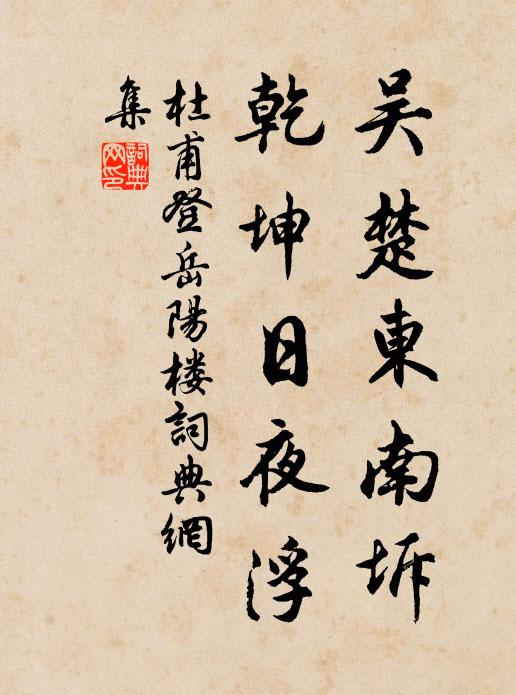 吴楚東南坼
乾坤日夜浮
杜甫登岳陽楼詞典網
集
詞典
网印